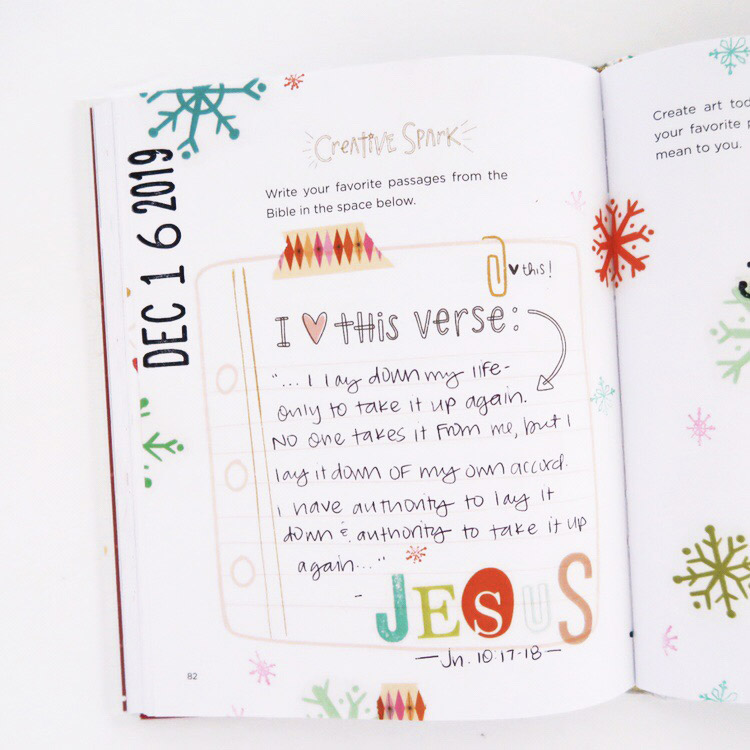 DEC 16 2019
Creative Spark
Write your favorite passages from the
Bible in the space below.
♥ this!
I ♥ this verse:
"... I lay down my life-
only to take it up again.
No one takes it from me, but I
lay it down of my own accord.
I have authority to lay it
down & authority to take it up
again..."
- JESUS
—Jn. 10:17-18—
82
Create art tod
your favorite p
mean to you.